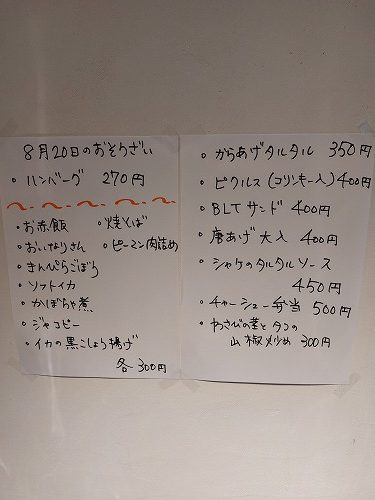 8月20日のおそうざい
・ハンバーグ 270円
・お赤飯 ・焼そば
・おいなりさん ・ピーマン肉詰め
・きんぴらごぼう
・ソフトイカ
・かぼちゃ煮
・ジャコピー
・イカの黒こしょう揚げ
各300円
・からあげタルタル 350円
・ピクルス(コリンキー入)400円
・BLTサンド 400円
・唐あげ大入 400円
・シャケのタルタルソース
450円
・チャーシュー弁当 500円
・わさびの茎とタコの
山椒炒め 300円